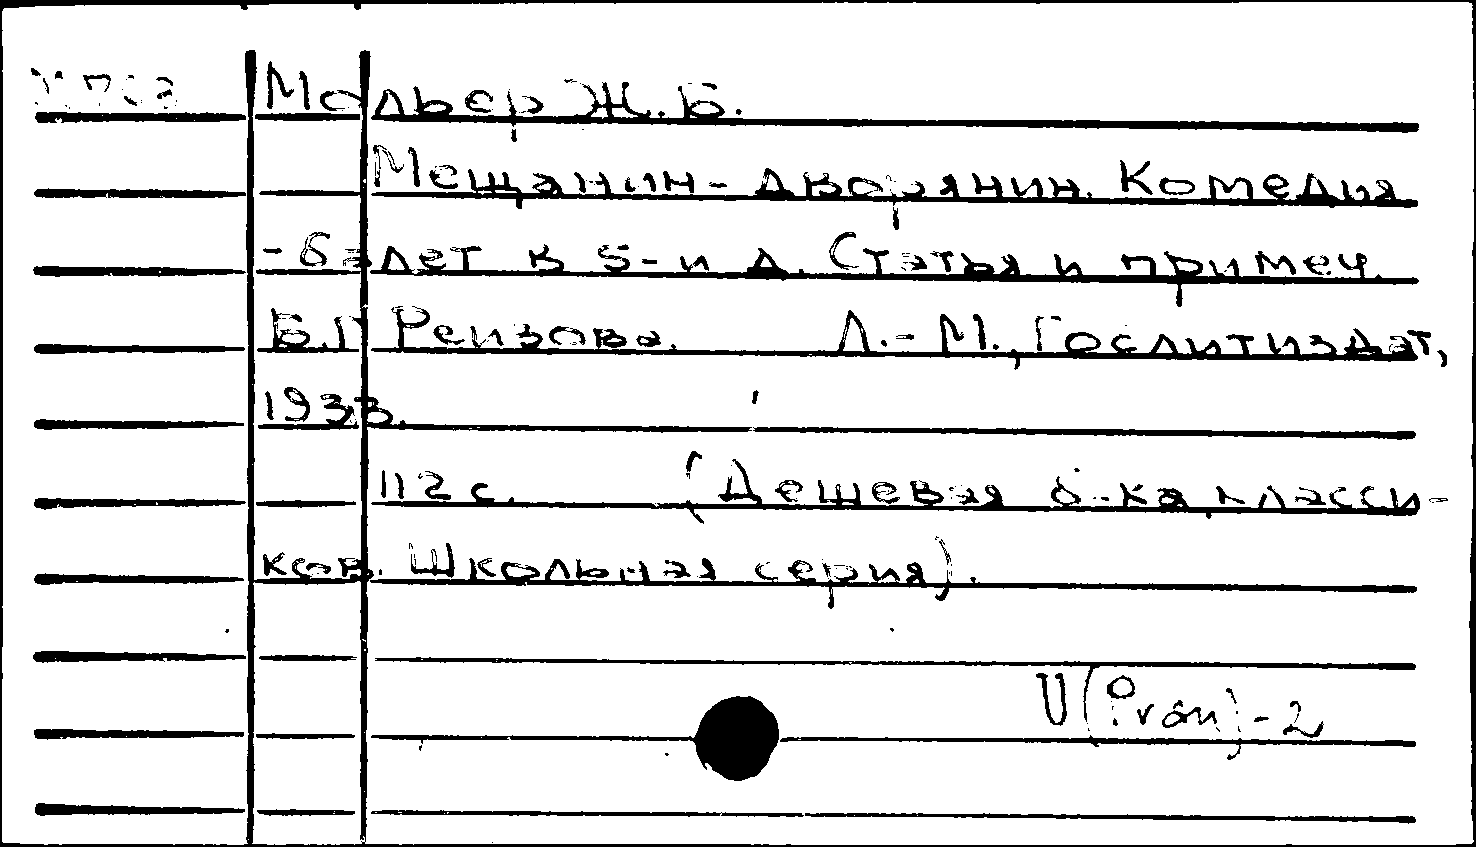 Мольер Ж.Б.
Мещанин-дворянин. Комедия
-балет в 5-и д. Статья и примеч.
Б.Г Реизова. Л.-М., Гослитиздат,
1933.
112 с. (Дешевая б-ка класси-
ков. Школьная серия).
U(Pran)-2